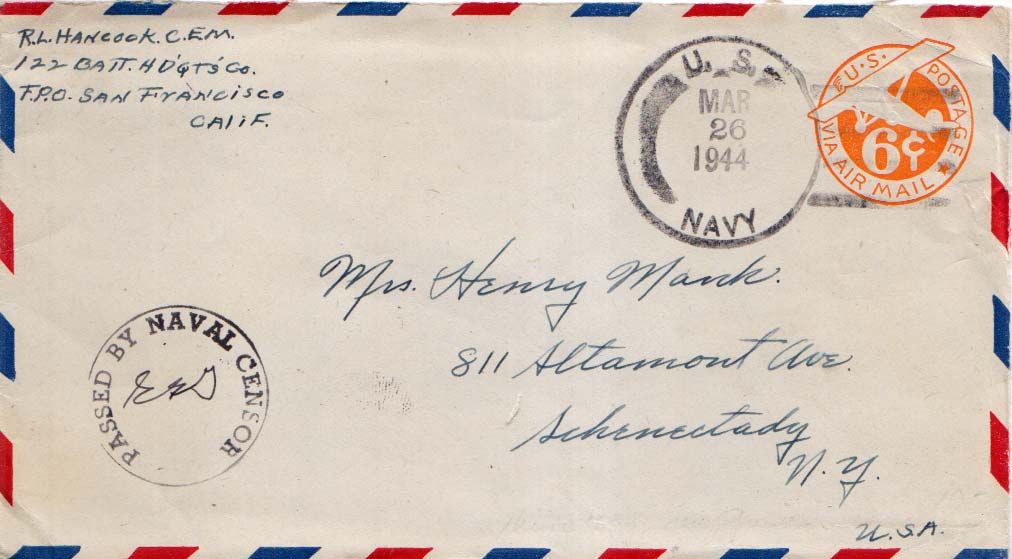 R.L. HANCOCK. C.E.M.
122 BATT. HD'QTS' CO.
F.P.O. SAN FRANCISCO
CALIF.
U. S.
MAR
26
1944
NAVY
U.S. POSTAGE
6¢
VIA AIR MAIL
Mrs. Henry Mank.
811 Altamont Ave.
Schenectady
N.Y.
U.S.A.
PASSED BY NAVAL CENSOR